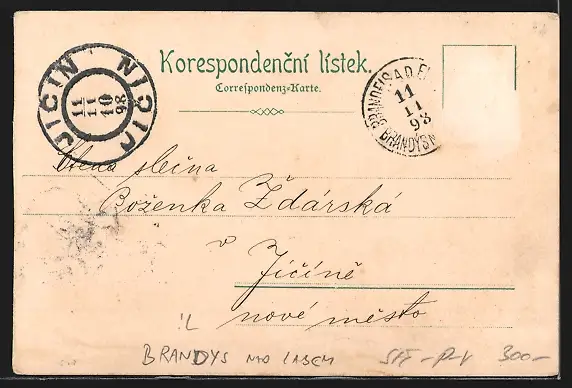 Korespondenční lístek.
Correspondenz-Karte.
JIČÍN JIČÍN
11
11
10
98
BRANDEIS A.D. E
BRANDÝS N
11
11
98
Ctěná slečna
Boženka Žďárská
v
Jičíně
nové město
BRANDYS NAD LABEM
300-